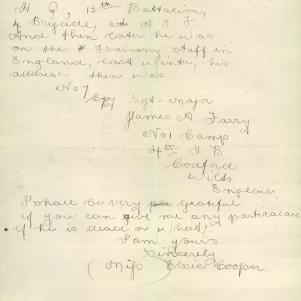 H Q, 15th Battalion,
4 Brigade, A I F.
And then later he was
on the Training Staff in
England, last winter, his
address then was
No 7
Coy Sgt-Major
James A. Farry
No 1 Camp
4th T B
Codford
Wilts
England.
I shall be very grateful
if you can give me any particulars
if he is dead or what?
I am yours
Sincerely
(Miss) Elsie Cooper.